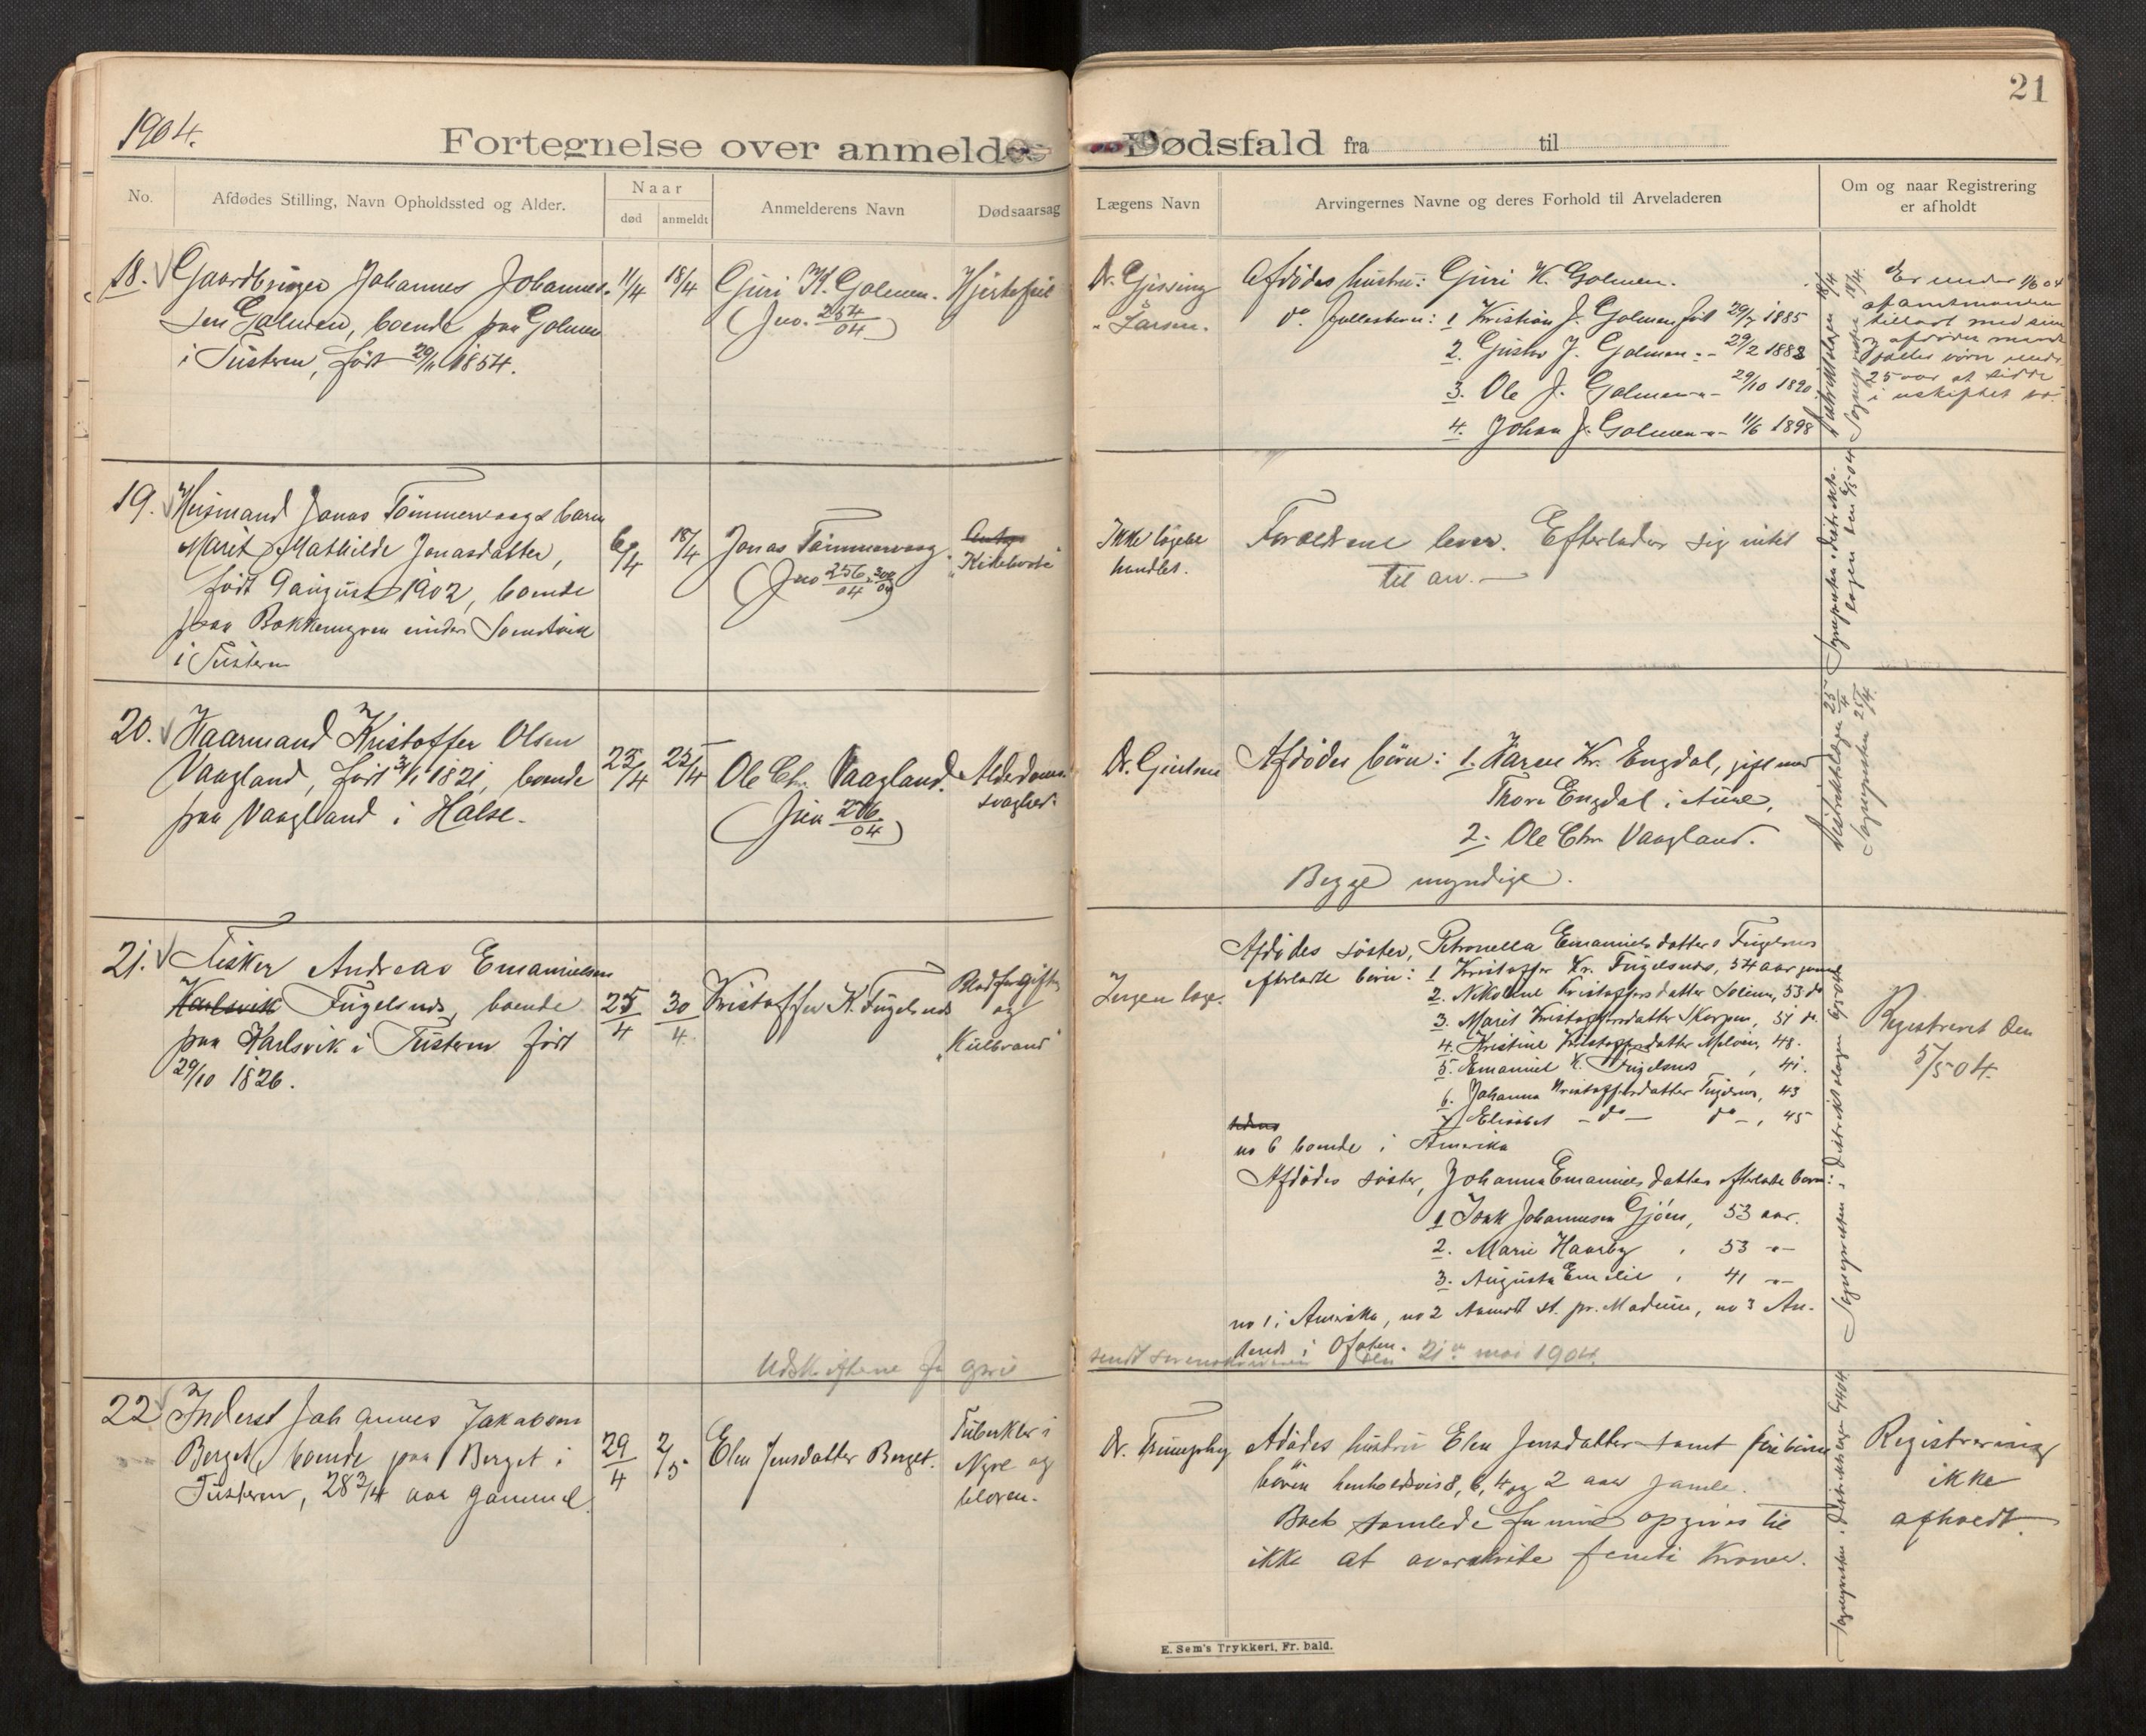 21
1904.
Fortegnelse over anmeldte Dødsfald fra til
No.
Afdødes Stilling, Navn Opholdssted og Alder.
Naar
død
anmeldt
Anmelderens Navn
Dødsaarsag
Lægens Navn
Arvingernes Navne og deres Forhold til Arveladeren
Om og naar Registrering
er afholdt
18.
Gaardbruger Johannes Johannes-
sen Golmen, boende paa Golmen
i Tustern, født 29/11 1854.
11/4
18/4
Guri K. Golmen.
(Jno. 254/04)
Hjertefeil
Dr. Gissing
" Larsen.
Afdødes hustru: Guri K. Golmen.
do. fællesbørn: 1 Kristian J. Golmen født 29/7 1885
2. Gustav J. Golmen - " - 29/2 1888
3. Ole J. Golmen - " - 29/10 1890
4. Johan J. Golmen - " - 11/6 1898
Er under 1/6 04
af amtmanden
tilladt med sine
og afdøde mands
fælles børn under
25 aar at sidde
i uskiftet bo.
19.
Husmand Jonas Tømmervaags barn
Marit Mathilde Jonasdatter,
født 9 august 1902, boende
paa Bakkemyren under
i Tustern
6/4
18/4
Jonas Tømmervaag
(Jno 256/04, 300/04)
"Kikhoste"
Ikke læge be
handlet.
Forældrene lever. Efterlader sig intet
til arv.
Sognepresten + distrikts-
lægen den 6/5 04
20.
Kaarmand Kristoffer Olsen
Vaagland, født 3/1 1821, boende
paa Vaagland i Halse.
22/4
25/4
Ole Chr. Vaagland.
(Jno 276/04)
Alderdoms-
svaghed.
Dr. Giertsen
Afdødes børn: 1. Karen Kr. Engdal, gift med
Thore Engdal i Aure,
2. Ole Chr. Vaagland.
Begge myndige.
Distriktslægen 25/4
Sognepresten 25/4.
21.
Fisker Andreas Emanuelsen
Karlsvik Fugelsnes, boende
paa Karlsvik i Tustern født
29/10 1826.
25/4
30/4
Kristoffer K. Fugelsnes
Blodforgiftn.
og
"Kulbrand"
Ingen læge.
Afdødes søster, Petronella Emanuelsdatter Fugelsnes
efterladte børn: 1 Kristoffer Kr. Fugelsnes, 54 aar gammel
2. Nikoline Kristoffersdatter Solem, 53 do
3. Marit Kristoffersdatter Skarpen, 51 do.
4. Kristine Kristoffersdatter Melvin, 48.
5. Emanuel K. Fugelsnes, 41.
6. Johanna Kristoffersdatter Fugelsnes, 43
7 Elisabet - do - do -, 45
no 6 boende i Amerika
Afdødes søster, Johanna Emanuelsdatters efterladte børn:
1 Isak Johannesen Gjøen, 53 aar.
2. Marie Haarby, 53 - " -
3. Augusta Emelie, 41 - " -
no 1 i Amerika, no 2 st. pr. no 3 An-
i Ofoten.
Registreret den
5/5 04.
Udskiftene
sendt
den 21de mai 1904.
22
Inderst Johannes Jakobsen
Berget, boende paa Berget i
Tustern, 28 3/4 aar gammel
29/4
2/5
Elen Jensdatter Berget.
Tuberkler i
Nyre og
blæren.
Dr. Trumphy
Afdødes hustru Elen Jensdatter samt fire
børn henholdsvis 8, 6, 4 og 2 aar gamle.
Boets samlede formue opgives til
ikke at overskride femti kroner.
Registrering
ikke
afholdt.
E. Sem's Trykkeri, Fr.hald.